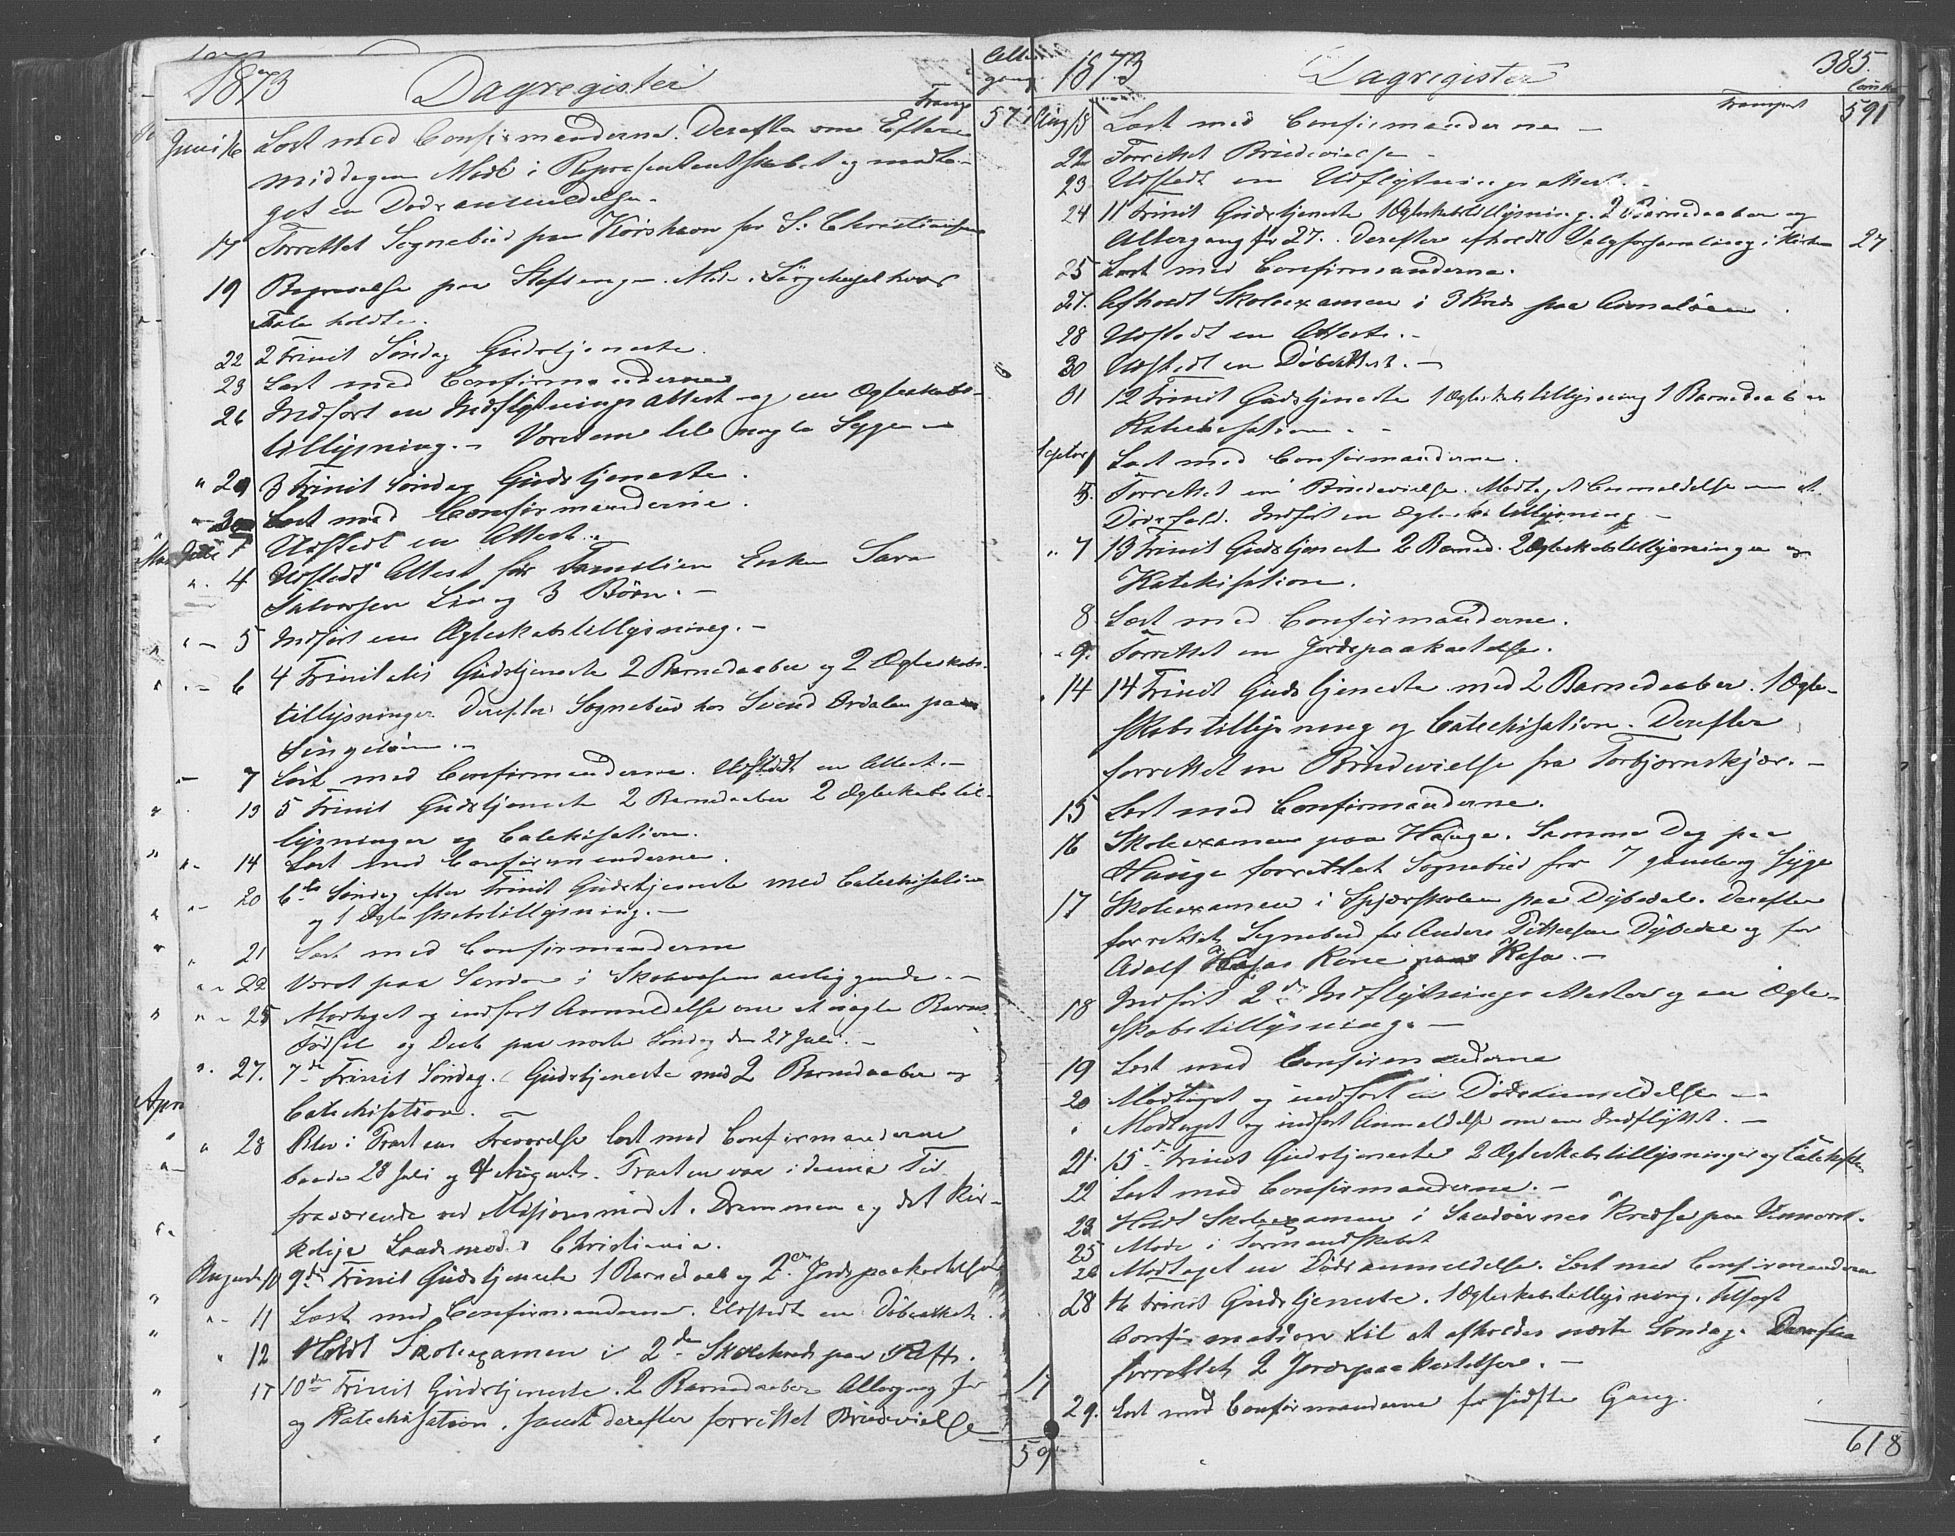 1873 Dagregister Alter-
gang
Transp 577
Juni 16 Læst med Confirmanderne. Derefter om Efter-
middagen Møde i Repræsentantskabet og modta-
get en Dødsanmeldelse.
17 Forrettet Sognebud paa Korshavn for S. Christiansen
19 Begravelse paa Møde i Sørgehuset hvor
Tale holdtes.
22 2 Trinit Søndag Gudstjeneste.
23 Læst med Confirmanderne
26 Indført en Indflytningsattest og en Ægteskabs-
tillysning. – Været om til nogle Syge –
" 29 3 Trinit Søndag Gudstjeneste.
30 Læst med Confirmanderne.
Juli 1 Udstedt en Attest.
" 4 Udstedt Attest for Familien Enken Sara
Halvorsen og 3 Børn. –
" – 5 Indført en Ægteskabstillysning. –
" – 6 4 Trinitatis Gudstjeneste 2 Barnedaaber og 2 Ægteskabs-
tillysninger. Derefter Sognebud hos Svend Ordalen paa
Singeløen. –
– 7 Læst med Confirmanderne. Udstedt en Attest. –
13 5 Trinit Gudstjeneste 2 Barnedaaber 2 Ægteskabstil-
lysninger og Catekisation.
" – 14 Læst med Confirmanderne.
" – 20 6te Søndag efter Trinit Gudstjeneste med Catechisation
og 1 Ægteskabstillysning. –
" 21 Læst med Confirmanderne
" – 22 Været paa Sandø i Skolevæsens anliggende. –
" – 25 Modtaget og indført Anmeldelse om et uægte Barns
Fødsel og Daab paa næste Søndag den 27 Juli. –
". 27. 7de Trinit Søndag. Gudstjeneste med 2 Barnedaaber og
Catechisation. –
" 28 Blev i Præstens Fraværelse læst med Confirmanderne
baade 28 Juli og 4 August. Præsten var i denne Tid
fraværende ved Missionsmødet i Drammen og det Kir-
kelige Landsmøde i Christiania.
August 10 9de Trinit Gudstjeneste 1 Barnedaab og 2de Jordspaakastelser
" – 11 Læst med Confirmanderne. Udstedt en Døbeattest.
" 12 Holdt Skolexamen i 2den Skolekreds paa
17 10de Trinit Gudstjeneste. 2 Barnedaaber Altergang for 1
og Katechisation, samt derefter forrettet Brudevielse
59
1873 Dagregister 385.
Transport 591
Aug 18 Læst med Confirmanderne –
22 Forrettet Brudevielse –
23 Udstedt en Udflytningsattest. –
24 11 Trinit Gudstjeneste 1 Ægteskabstillysning. 2 Barnedaaber og
Altergang for 27. Derefter afholdt Valgforsamling i Kirken 27
25 Læst med Confirmanderne.
27. Afholdt Skoleexamen i 3 Kreds paa
28 Udstedt en Attest. –
30 Udstedt en Døbeattest. –
31 12 Trinit Gudstjeneste 1 Ægteskabstillysning 1 Barnedaab og
Katechisation. –
Septbr 1 Læst med Confirmanderne.
5. Forrettet en Brudevielse. Modtaget Anmeldelse om et
Dødsfald. Indført en Ægteskabstillysning –
" 7 13 Trinit Gudstjeneste 2 Barned. 2 Ægteskabstillysninger og
Katekisation.
8. Læst med Confirmanderne.
9. Forrettet en Jordspaakastelse.
14 14 Trinit Gudstjeneste med 2 Barnedaaber. 1 Ægte-
skabstillysning og Catechisation. Derefter
forrettet en Brudevielse fra Torbjørnskjær. –
15 Læst med Confirmanderne.
16 Skoleexamen paa Hauge. Samme Dag paa
Hauge forrettet Sognebud for 7 gamle og Syge
17 Skoleexamen i Skjærskolen paa Dybedal. Derefter
forrettet Sognebud for Anders Pettersen Dybedal og for
Adolf
18 Indført 2de Indflytningsattester og en Ægte-
skabstillysning. –
19 Læst med Confirmanderne
20 Modtaget og indført en Dødsanmeldelse –
" Modtaget og indført Anmeldelse om en Indflyttet. –
21. 15de Trinit Gudstjeneste 2 Ægteskabstillysninger og
22 Læst med Confirmanderne. –
23 Holdt Skoleexamen i Kreds paa
25 Møde i Formandskabet
26 Modtaget en Dødsanmeldelse. Læst med Confirmanderne
28 16 Trinit Gudstjeneste. 1 Ægteskabstillysning. Tilsagt
Confirmation til at afholdes næste Søndag. Derefter
forrettet 2 Jordspaakastelser. –
29. Læst med Confirmanderne for sidste Gang.
618